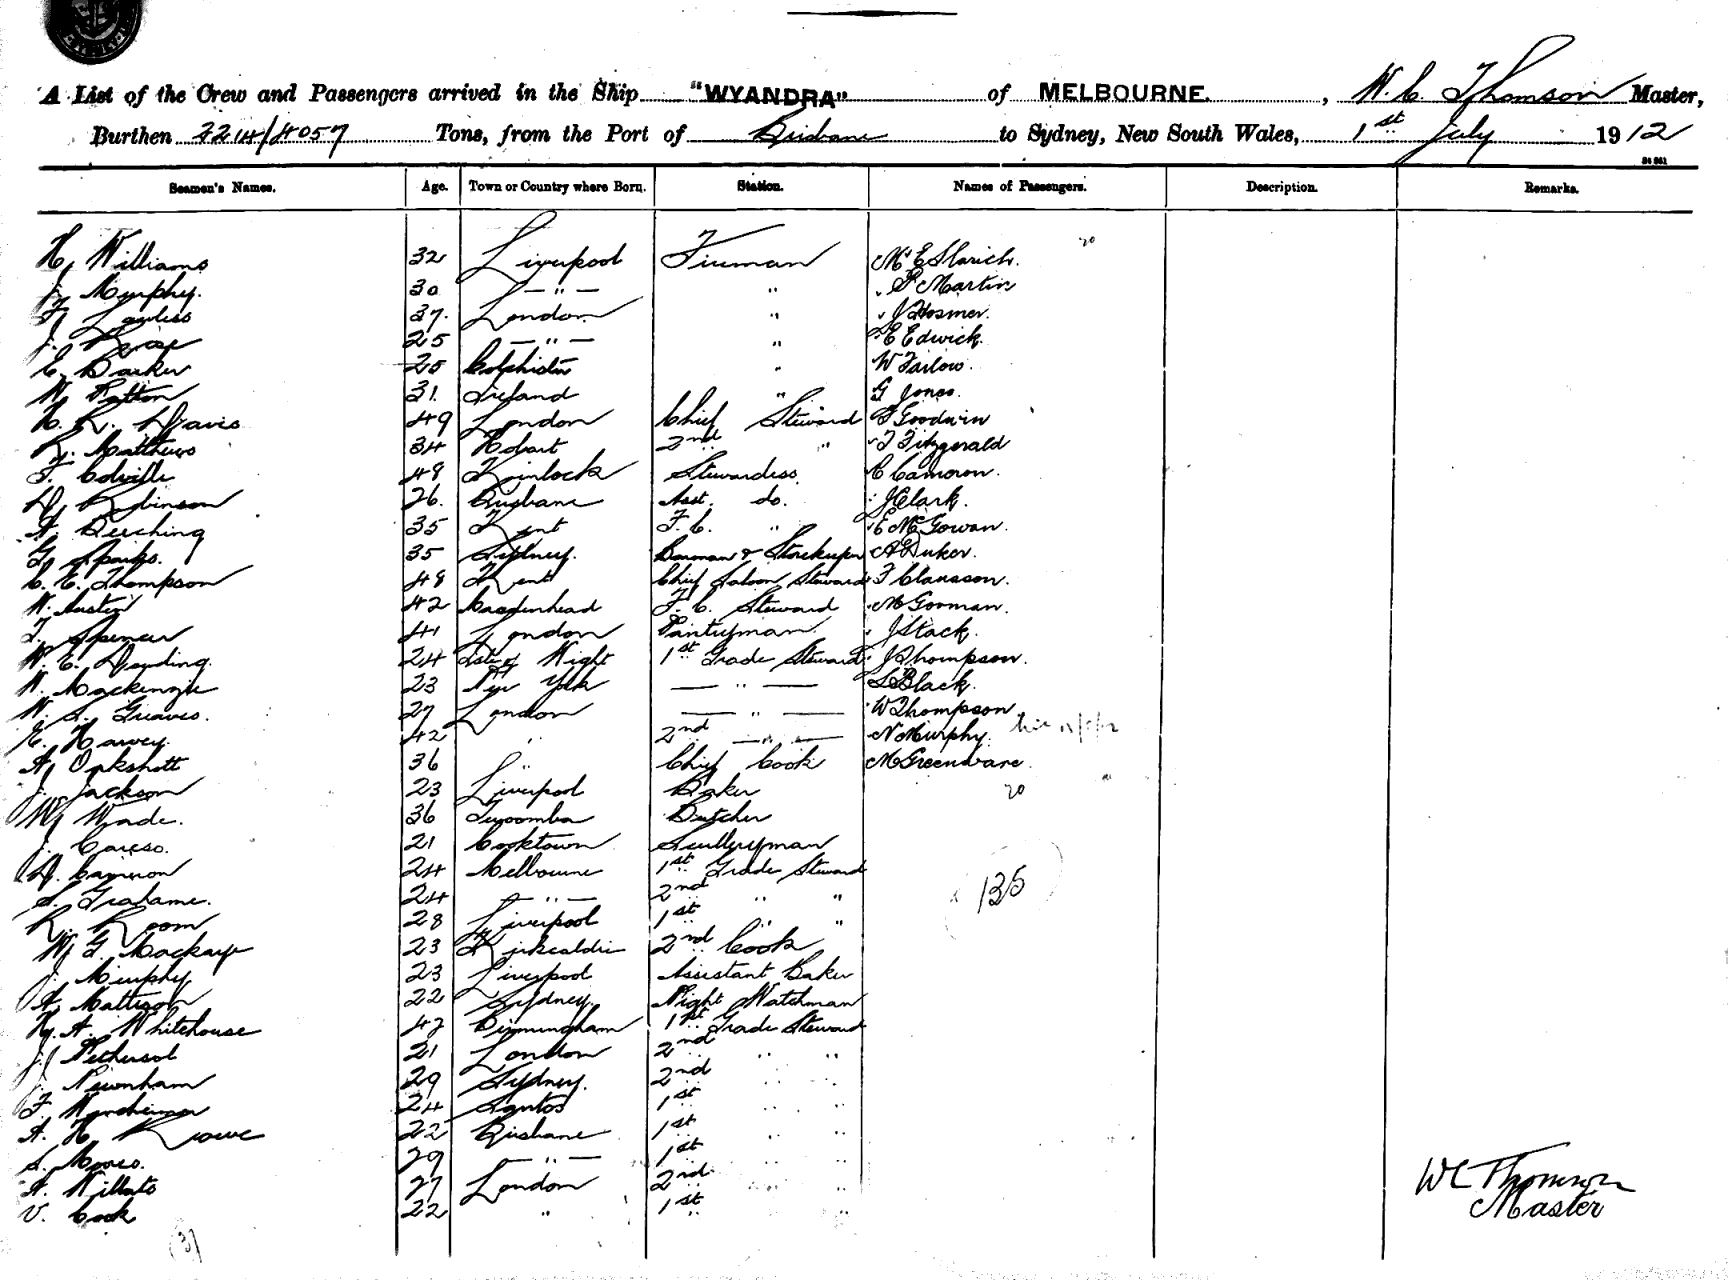 A List of the Crew and Passengers arrived in the Ship "WYANDRA" of MELBOURNE, W. C. Thomson Master,
Burthen 2214/4057 Tons, from the Port of Brisbane to Sydney, New South Wales, 1st July 1912
Seamen's Names. Age. Town or Country where Born. Station. Names of Passengers. Description. Remarks.
H. Williams 32 Liverpool Fireman Mr E Slarich.
J. Murphy. 30 — " — " F Martin
F. Lawless 37. London " J Hosmer.
J. 25 — " — " E Edwick.
E. Barker 25 " W Farlow.
W. Patton 31. Ireland " G Jones.
H. R. Davis 49 London Chief Steward F Goodwin
R. Matthews 34 Hobart 2nd " T Fitzgerald
F. Colville 48 Kinlock Stewardess C Cameron.
D. Robinson 26. Brisbane Asst. do. J Clark.
A. Beeching 35 Kent F. C. " E McGowan.
G. Sparks. 35 Sydney. Barman & Storekeeper A Duker.
C. E. Thompson 48 Kent Chief Saloon Steward F Clausson.
W. Austin 42 F. C. Steward M Gorman.
T. Spencer 41 London Pantryman. J Stack.
W. E. Dryding. 24 Isle of Wight 1st Grade Steward J Thompson.
W. Mackenzie 23 New York — " — S Black.
W. S. Greaves. 27 London — " — W Thompson
E. Harvey. 42 " 2nd — " — N Murphy.
A. Oakshott 36 " Chief Cook M Greenware.
J. Jackson 23 Liverpool Baker 20
W. Wade. 36 Toowomba Butcher
J. Careso. 21 Cooktown Sculleryman
D. Cameron 24 Melbourne 1st Grade Steward
S. Grahame. 24 — " — 2nd " " 135
R. Room 28 Liverpool 1st " "
W. G. Mackaye 23 Kirkcaldie 2nd Cook
J. Murphy 23 Liverpool Assistant Baker
A. Mattison 22 Sydney. Night Watchman
H. A. Whitehouse 47 Birmingham 1st Grade Steward
J. Nethersol 21 London 2nd " "
J. Newnham 29 Sydney. 2nd " "
F. 24 Santos 1st " "
A. H. Rowe 22 Brisbane 1st " "
S. Moores. 29 — " — 1st " "
A. Willats 27 London 2nd " "
V. Cook 22 " 1st " "
W C Thomson
Master
(3)